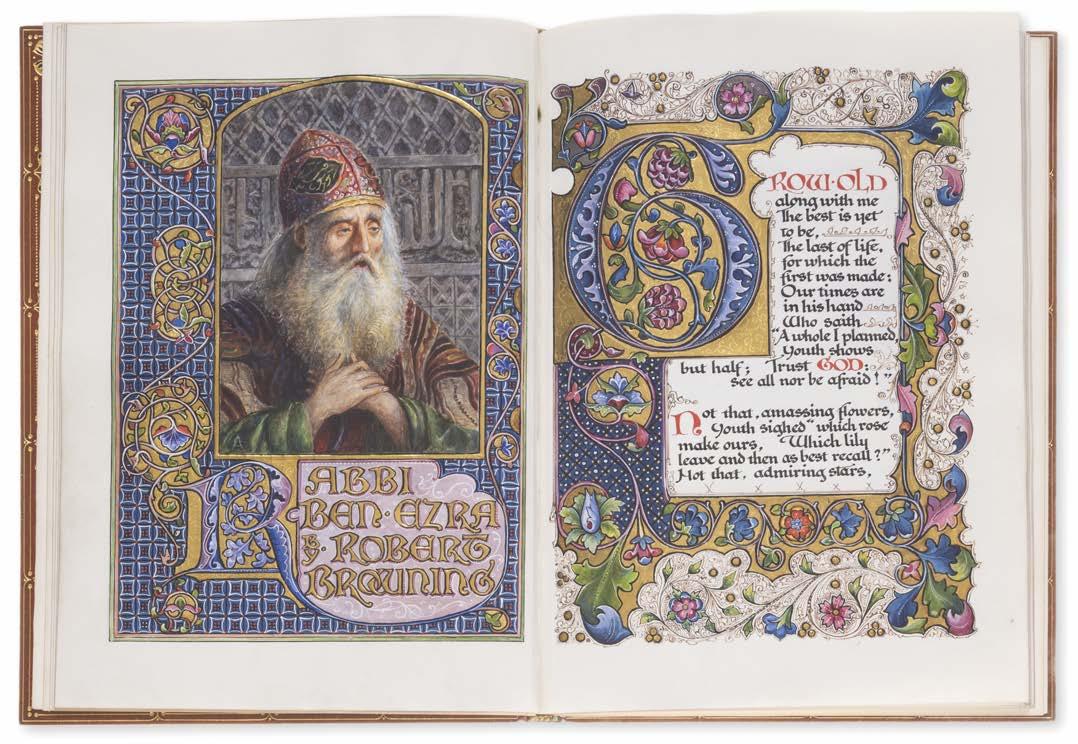 A
RABBI
BEN·EZRA
BY· ROBERT
BROWNING
GROW·OLD
along with me
The best is yet
to be,
The last of life,
for which the
first was made:
Our times are
in his hand
Who saith
"A whole I planned,
Youth shows
but half; Trust GOD:
see all nor be afraid!"
Not that, amassing flowers,
Youth sighed "which rose
make ours, Which lily
leave and then as best recall?"
Not that, admiring stars,